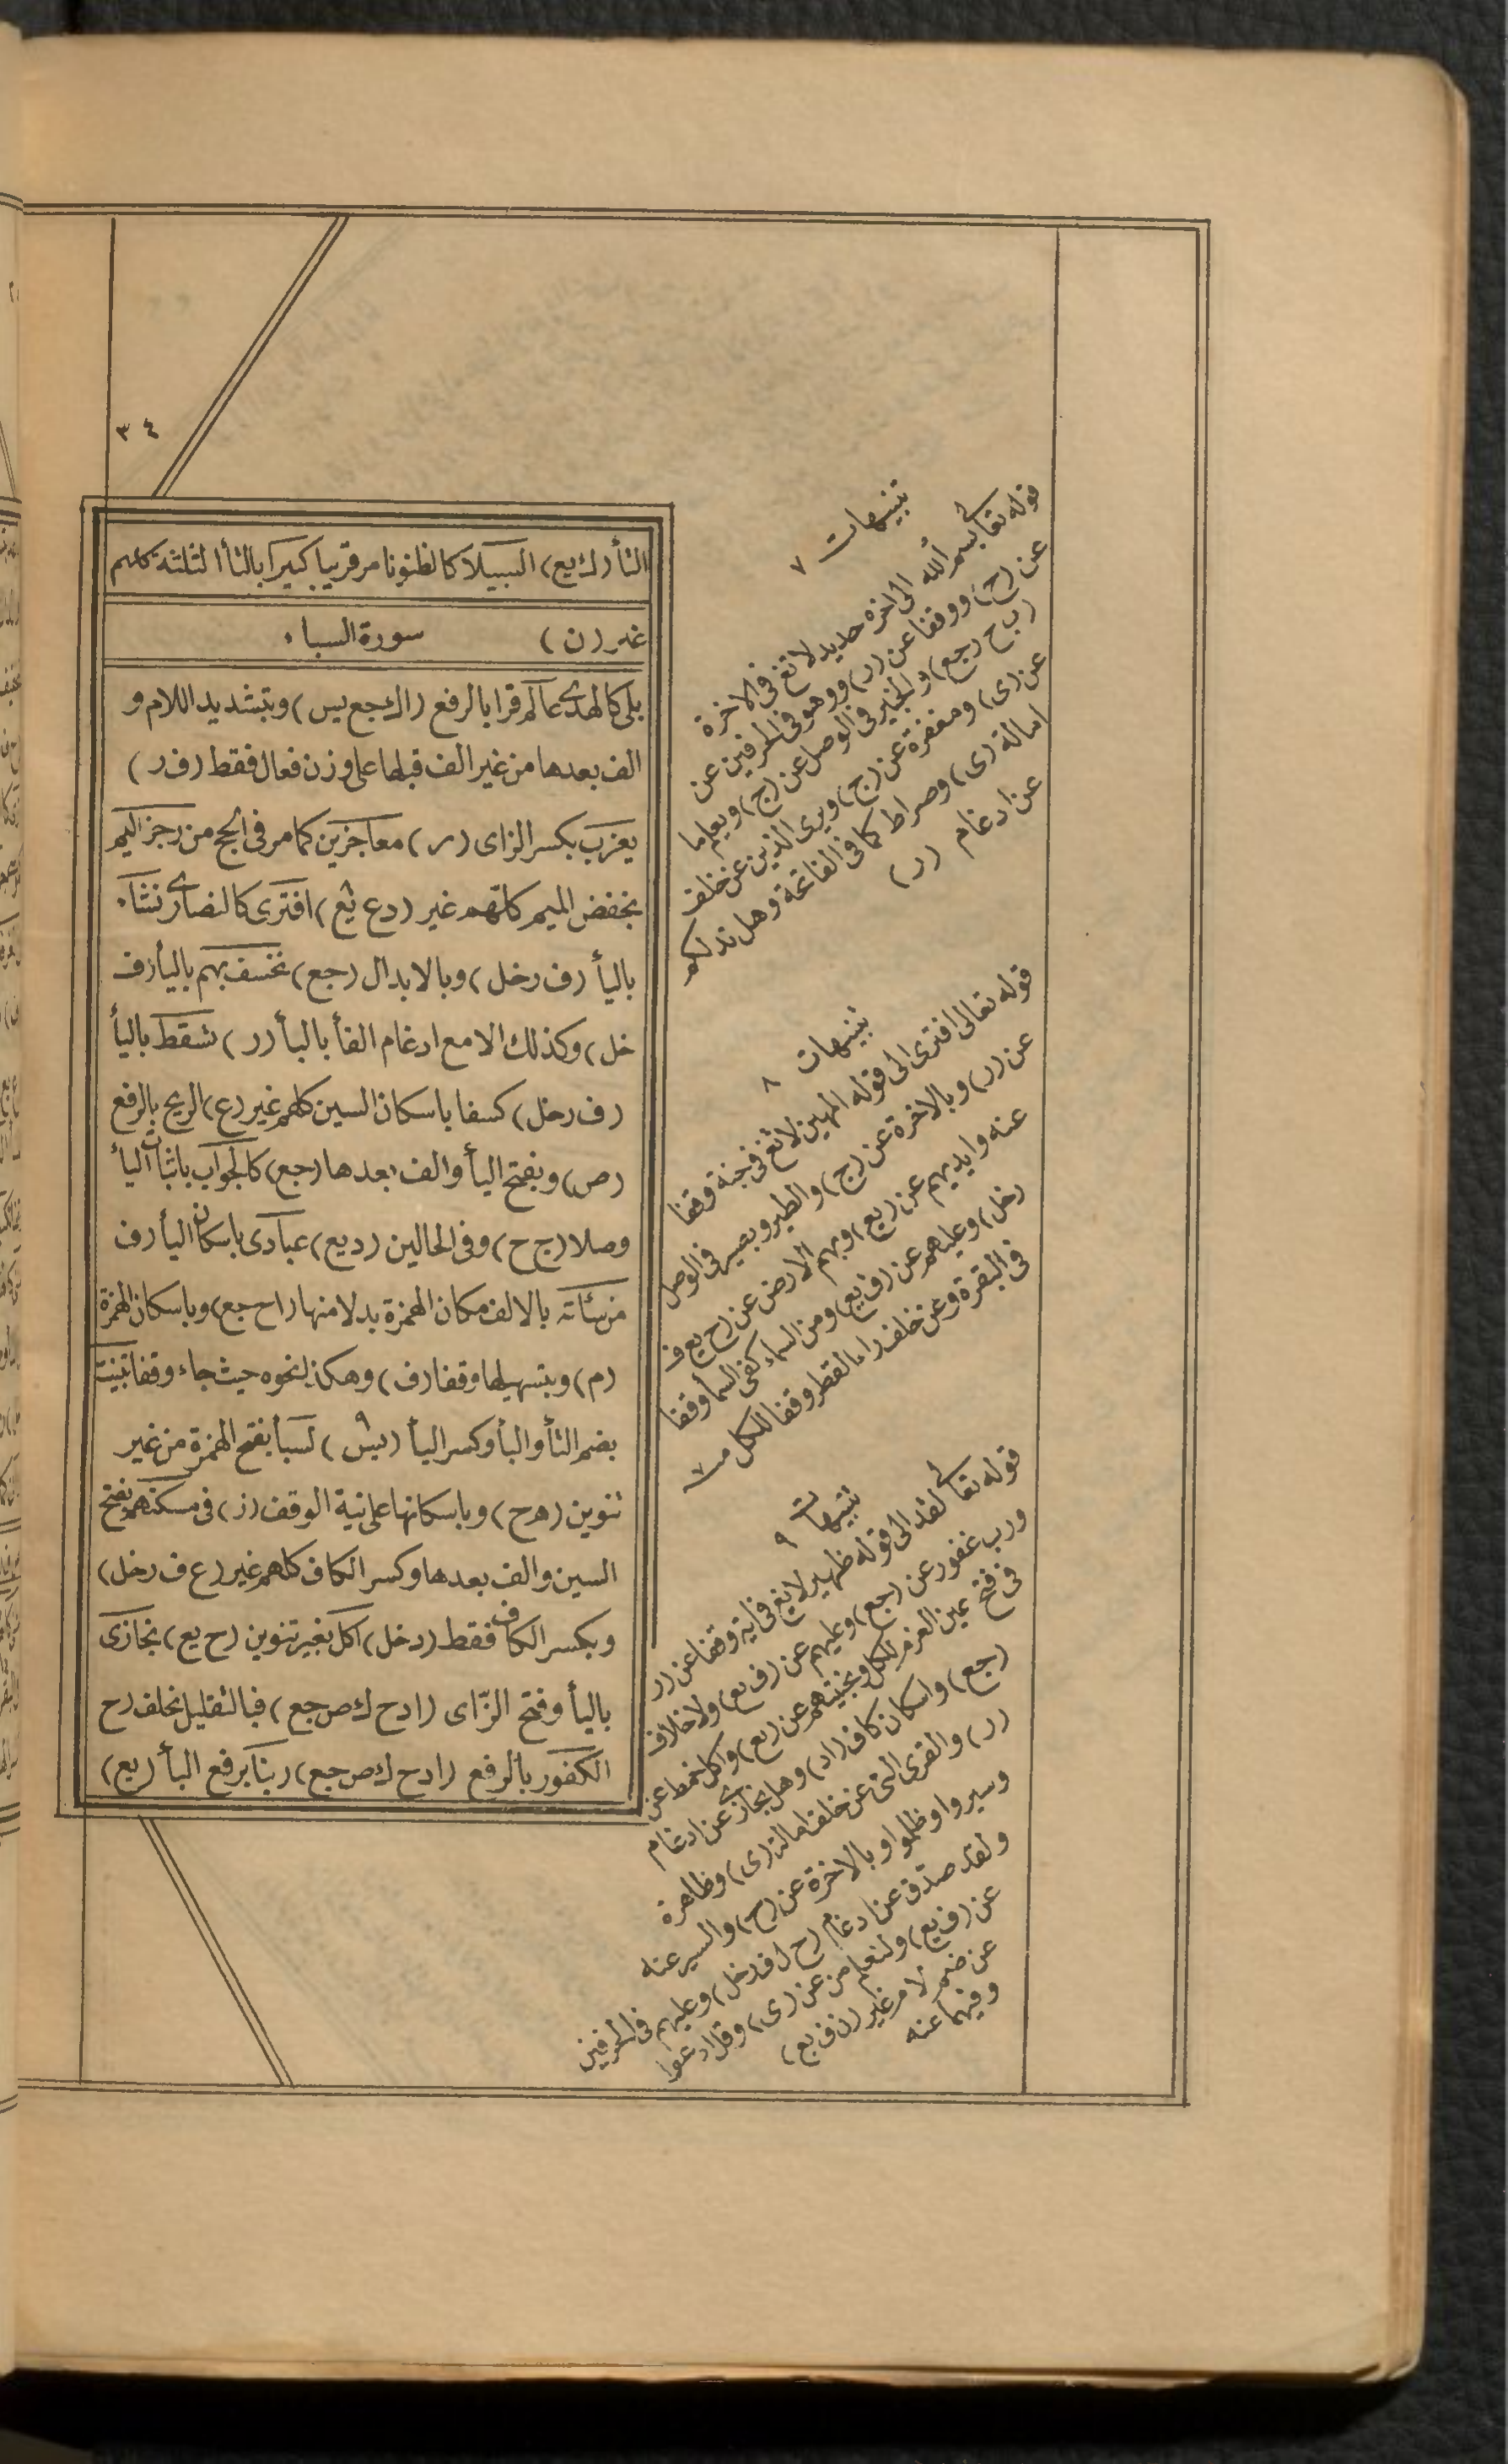 ٣٤
التأ (ك يع) السبيلا كالظنونا مر قريبا كبيرا بالثأ الثلثة كلهم
غير (ن) سورة السباء
بلى كالهدى عالم قرا بالرفع (اك جع يس) وبتشديد اللام و
الف بعدها من غير الف قبلها على وزن فعال فقط (ف ر)
يعزب بكسر الزاى (ر) معاجزين كما مر فى الحج من رجز اليم
بخفض الميم كلهم غير (دع يع) افترى كالنصارى نشاء
باليأ (ف رخل) وبالابدال (جع) نخسف بهم باليأ (ف
خل) وكذلك الا مع ادغام الفأ بالبأ (ر) نسقط باليأ
(ف رخل) كسفا باسكان السين كلهم غير (ع) الريح بالرفع
(ص) وبفتح اليأ والف بعدها (جع) كالجواب باثبات اليأ
وصلا (ج ح) وفى الحالين (د يع) عبادى باسكان اليأ (ف
منسأته بالالف مكان الهمزة بدلا منها (اح جع) وباسكان الهمزة
(م) وبتسهيلها وقفا (ف) وهكذا لنحوه حيث جاء وقفا تبينت
بضم التأ والبأ وكسر اليأ (يس) لسبأ بفتح الهمزة من غير
تنوين (ه ح) وباسكانها على نية الوقف (ز) فى مسكنهم بفتح
السين والف بعدها وكسر الكاف كلهم غير (ع ف رخل)
وبكسر الكاف فقط (رخل) اكل بغير تنوين (ح يع) نجازى
باليأ وفتح الزاى (ادح ك ص جع) فبالتقليل بخلف (ح
الكفور بالرفع (ادح ك ص جع) ربنا برفع البأ (يع)
تنبيهات ٧
قوله تعالى بسم الله الى اخره حديد لا تغ فى الاخرة
عن (ح) ووقفا عن (ر) ووهو فى الحرفين عن
(ب ح ر جع) والخبير فى الوصل عن (ج) ويعلم ما
عن (ى) ومغفرة عن (ج) ويرى الذين عن خلف
امالة (ى) وصراط كما فى الفاتحة وهل ندلكم
عن ادغام (ر)
تنبيهات ٨
قوله تعالى افترى الى قوله المهين لا تغ فى جنة وقفا
عن (ر) وبالاخرة عن (ج) والطير وبصير فى الوصل
عنه وايديهم عن (يع) وبهم الارض عن (ح يع ف
رخل) وعليهم عن (ف يع) ومن السماء كفى السمأ وقفا
فى البقرة وعن خلف راء القطر وقفا للكل
تنبيهات ٩
قوله تعالى لقد الى قوله ظهير لا تغ فى اية وقفا عن (ر
ورب غفور عن (جع) وعليهم عن (ف يع) ولا خلاف
فى فتح عين العرم للكل وبجنتيهم عن (يع) واكل خمط عن
(جع) واسكان كاف (اد) وهل يجازى عن ادغام
(ر) والقرى التى عن خلف امالة (ى) وظاهرة
وسيروا وظلموا وبالاخرة عن (ج) والسير عنه
ولقد صدق عن ادغام (ح ل ف رخل) وعليهم فى الحرفين
عن (ف يع) ولنعلم من عن (ى) وقل ادعوا
عن ضم لام غير (ن ف يع)
وفيهما عنه